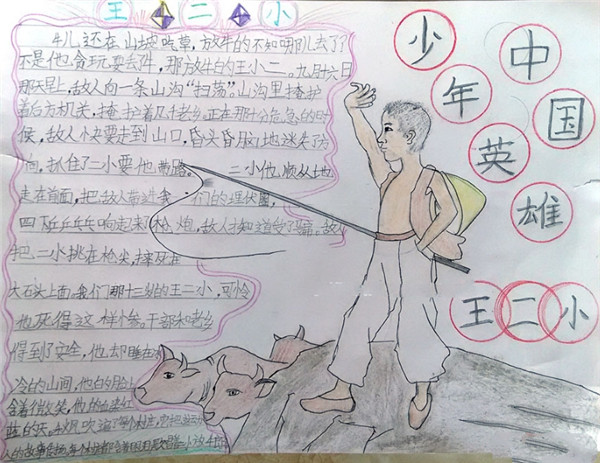 王二小
牛儿还在山坡吃草,放牛的不知哪儿去了
不是他贪玩耍丢牛,那放牛的王小二。九月十六日
那天早上,敌人向一条山沟“扫荡”,山沟里掩护
着后方机关,掩护着几千老乡。正在那十分危急的时
候,敌人快要走到山口,昏头昏脑地迷失了方
向,抓住了二小要他带路。二小他顺从地
走在前面,把敌人带进我们的埋伏圈,
四下乒乒乓乓响起来了枪炮,敌人才知道受了骗。敌人
把二小挑在枪尖,摔死在
大石头上面。我们那十三岁的王二小,可怜
他死得这样惨。干部和老乡
得到了安全,他却睡在
冷的山间,他的脸上
含着微笑,他的血染红
蓝的天,秋风吹遍了
人的故事
少年
中国
英雄
王二小